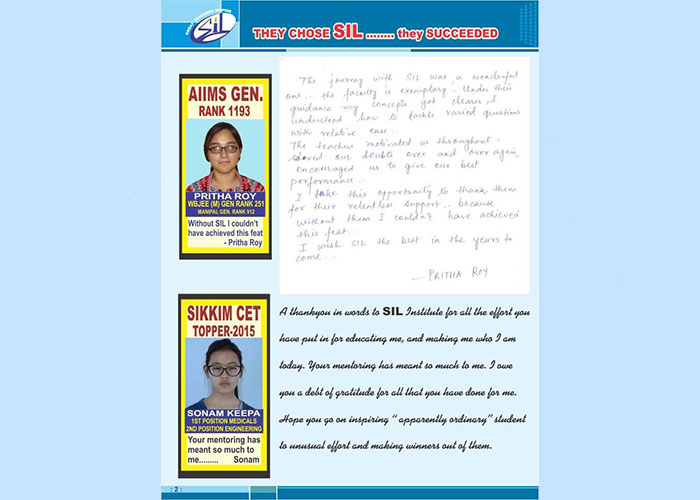 SiL
THEY CHOSE SIL ........ they SUCCEEDED
AIIMS GEN.
RANK 1193
PRITHA ROY
WBJEE (M) GEN RANK 251
MANIPAL GEN. RANK 912
Without SIL I couldn't
have achieved this feat
- Pritha Roy
The journey with SIL was a wonderful
one... the faculty is exemplary.. Under their
guidance my concepts got clearer, I
understood how to tackle varied questions
with relative ease..
The teachers motivated us throughout..
solved our doubts over and over again,
encouraged us to give our best
performance...
I take this opportunity to thank them
for their relentless support.. because
without them I couldn't have achieved
this feat..
I wish SIL the best in the years to
come...
- PRITHA ROY
SIKKIM CET
TOPPER-2015
SONAM KEEPA
1ST POSITION MEDICALS
2ND POSITION ENGINEERING
Your mentoring has
meant so much to
me......... Sonam
A thankyou in words to SIL Institute for all the effort you
have put in for educating me, and making me who I am
today. Your mentoring has meant so much to me. I owe
you a debt of gratitude for all that you have done for me.
Hope you go on inspiring “ apparently ordinary” student
to unusual effort and making winners out of them.
: 2 :